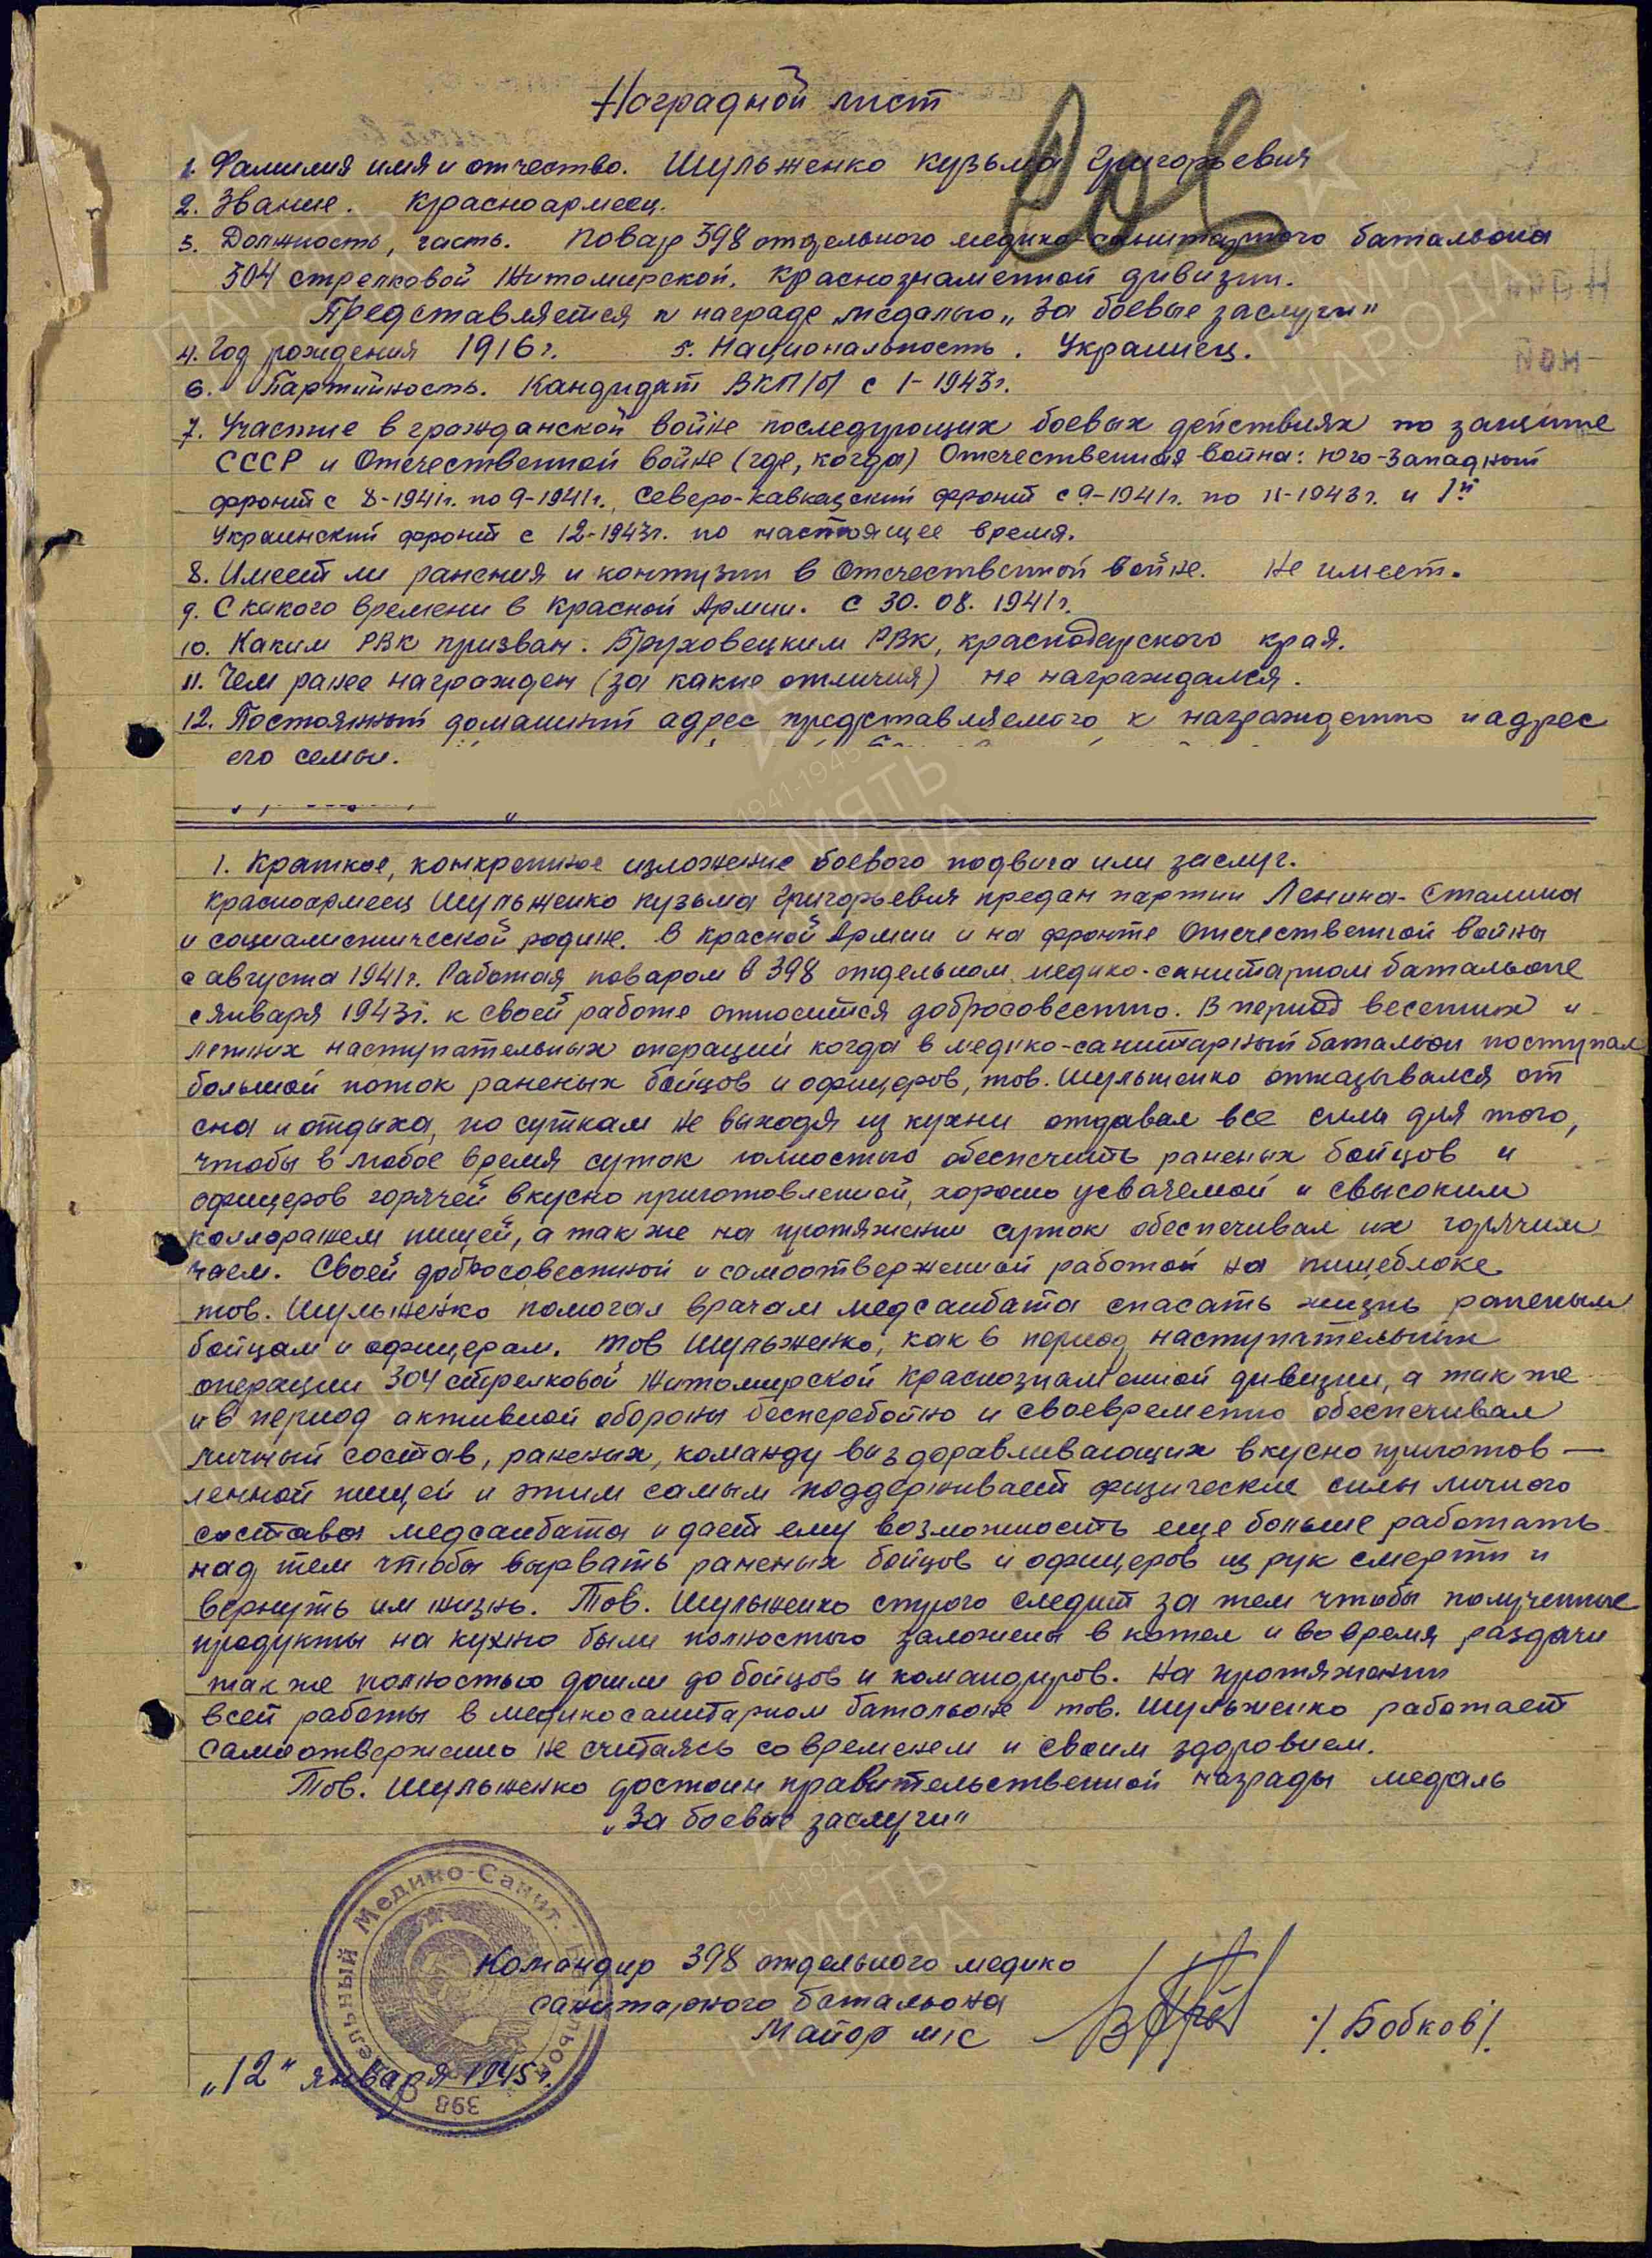 Наградной лист
1. Фамилия имя и отчество. Шульженко Кузьма Григорьевич
2. Звание. Красноармеец.
3. Должность, часть. Повар 398 отдельного медико-санитарного батальона
304 стрелковой Житомирской, Краснознаменной дивизии.
Представляется к награде медалью „За боевые заслуги"
4. Год рождения 1916 г. 5. Национальность. Украинец.
6. Партийность. Кандидат ВКП/б/ с 1-1943г.
7. Участие в гражданской войне последующих боевых действиях по защите
СССР и Отечественной войне (где, когда) Отечественная война: Юго-Западный
фронт с 8-1941г. по 9-1941г., Северо-Кавказский фронт с 9-1941г. по 11-1943г. и 1й
Украинский фронт с 12-1943г. по настоящее время.
8. Имеет ли ранения и контузии в Отечественной войне. Не имеет.
9. С какого времени в Красной Армии. С 30.08.1941г.
10. Каким РВК призван. Бруховецким РВК, Краснодарского края.
11. Чем ранее награжден (за какие отличия) не награждался.
12. Постоянный домашний адрес представляемого к награждению и адрес
его семьи.
1. Краткое, конкретное изложение боевого подвига или заслуг.
Красноармеец Шульженко Кузьма Григорьевич предан партии Ленина-Сталина
и социалистической родине. В Красной Армии и на фронте Отечественной войны
с августа 1941г. Работая поваром в 398 отдельном медико-санитарном батальоне
с января 1943г. к своей работе относится добросовестно. В период весенних и
летних наступательных операций когда в медико-санитарный батальон поступал
большой поток раненых бойцов и офицеров, тов. Шульженко отказывался от
сна и отдыха, по суткам не выходя из кухни отдавал все силы для того,
чтобы в любое время суток полностью обеспечить раненых бойцов и
офицеров горячей вкусно приготовленной, хорошо усвояемой и с высоким
каллоражем пищей, а так же на протяжении суток обеспечивал их горячим
чаем. Своей добросовестной и самоотверженной работой на пищеблоке
тов. Шульженко помогал врачам медсанбата спасать жизнь раненым
бойцам и офицерам. Тов Шульженко, как в период наступательных
операции 304 стрелковой Житомирской Краснознаменной дивизии, а так же
и в период активной обороны бесперебойно и своевременно обеспечивал
личный состав, раненых, команду выздоравливающих вкусно приготов-
ленной пищей и этим самым поддерживает физические силы личного
состава медсанбата и дает ему возможность еще больше работать
над тем чтобы вырвать раненых бойцов и офицеров из рук смерти и
вернуть им жизнь. Тов. Шульженко строго следит за тем чтобы полученные
продукты на кухню были полностью заложены в котел и во время раздачи
так же полностью дошли до бойцов и командиров. На протяжении
всей работы в медикосанитарном батальоне тов. Шульженко работает
самоотверженно не считаясь со временем и своим здоровием.
Тов. Шульженко достоин правительственной награды медаль
„За боевые заслуги"
Командир 398 отдельного медико
санитарного батальона
Майор м/с /Бобков/.
„12" января 1945г.
398 Отдельный Медико-Санит. Батальон
ПАМЯТЬ НАРОДА
1941-1945